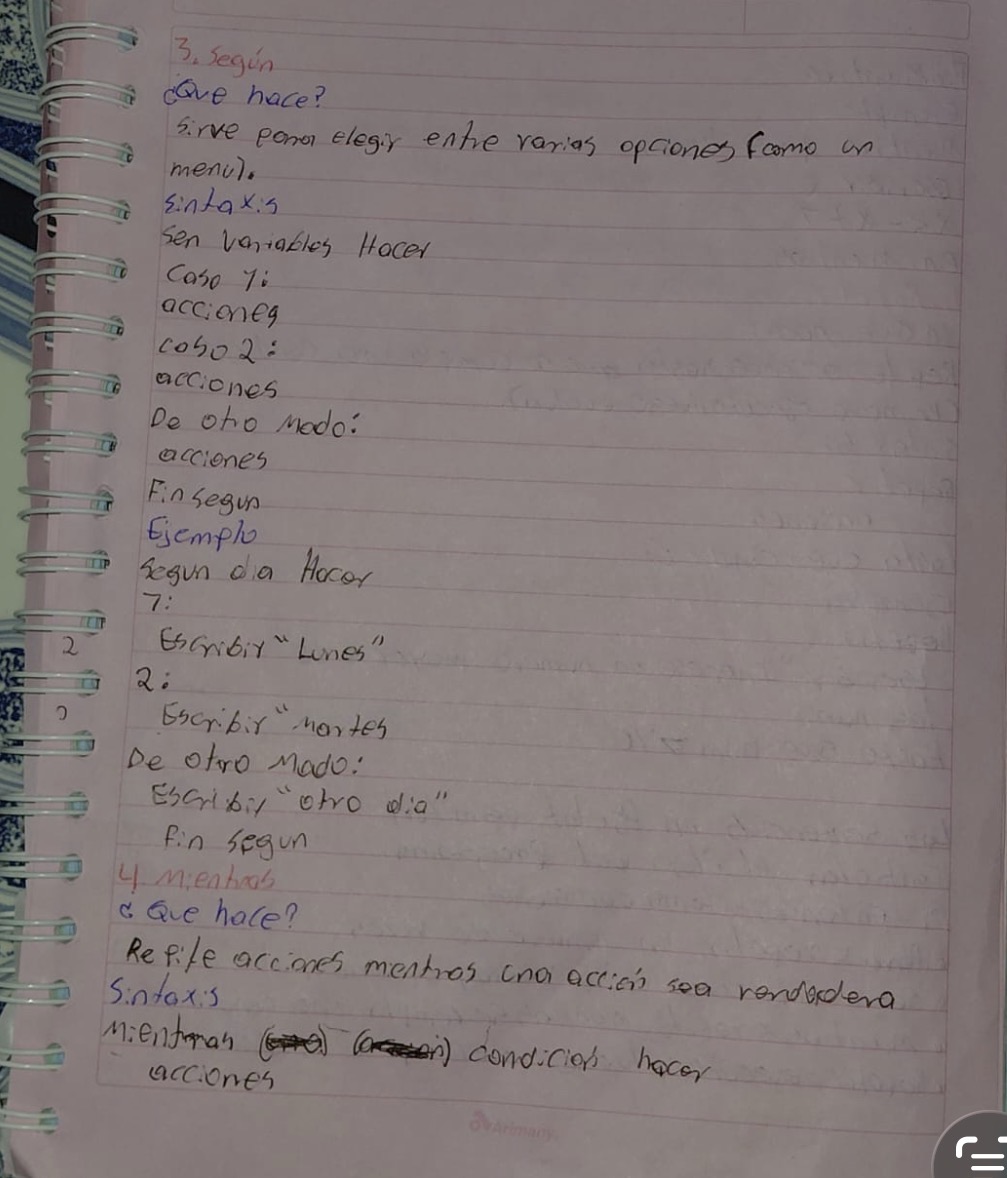 3. Según
¿Que hace?
Sirve para elegir entre varias opciones (como un
menú).
Sintaxis
Sen variables Hacer
Caso 1:
acciones
caso 2:
acciones
De otro Modo:
acciones
Fin segun
Ejemplo
Segun dia Hacer
1:
2
Escribir "Lunes"
2:
Escribir "Martes
De otro Modo:
Escribir "otro dia"
Fin segun
4 Mientras
¿Que hace?
Repite acciones mentras una acción sea verdadera
Sintaxis
Mientras condicion hacer
acciones
Arimany